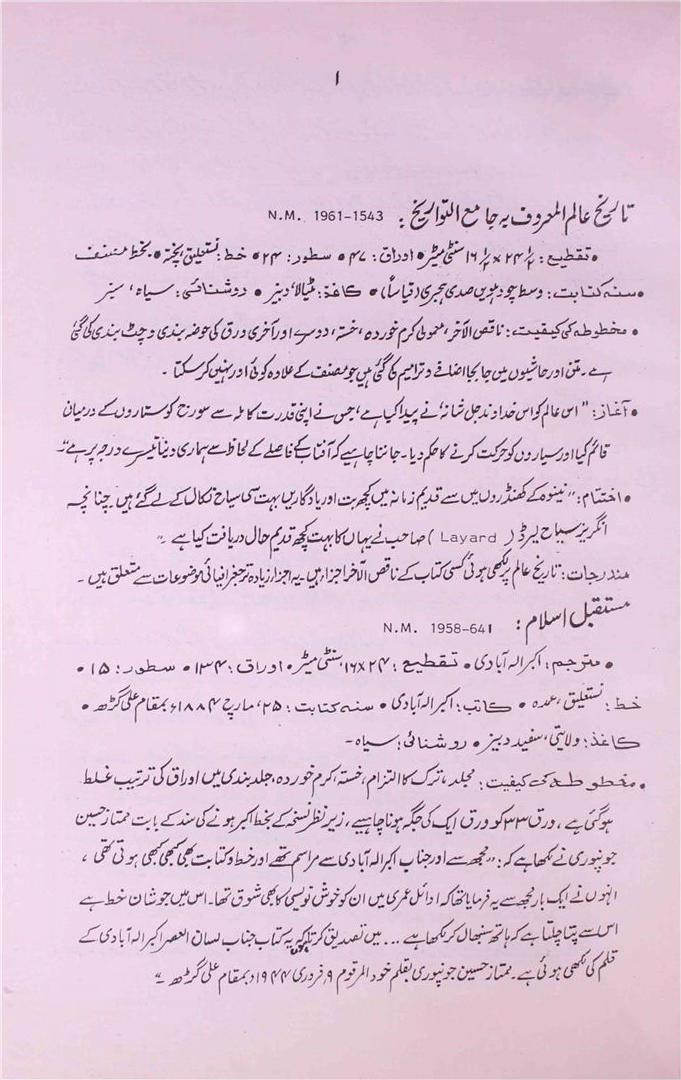 ۱
تاریخ عالم المعروف بہ جامع التواریخ : N.M. 1961-1543
• تقطیع : ۲۴ ۱/۲ × ۱۶ ۱/۲ سنٹی میٹر • اوراق : ۴۷ • سطور : ۲۴ • خط : نستعلیق پختہ • بخط مصنف
• سنہ کتابت : وسط چودہویں صدی ہجری (قیاساً) • کاغذ : مٹیالا، دبیز • روشنائی : سیاہ، سبز
• مخطوطہ کی کیفیت : ناقص الآخر، معمولی کرم خوردہ، خستہ، دوسرے اور آخری ورق کی حوضہ بندی و چٹ بندی کی گئی
ہے ۔ متن اور حاشیوں میں جابجا اضافے و ترامیم کی گئی ہیں جو مصنف کے علاوہ کوئی اور نہیں کرسکتا ۔
• آغاز : " اس عالم کو اس خداوند جل شانہ' نے پیدا کیا ہے، جس نے اپنی قدرت کاملہ سے سورج کو ستاروں کے درمیان
قائم کیا اور سیاروں کو حرکت کرنے کا حکم دیا ۔ جاننا چاہیے کہ آفتاب کے فاصلے کے لحاظ سے ہماری دنیا تیسرے درجہ پر ہے "۔
• اختتام : " نینوہ کے کھنڈروں میں سے قدیم زمانہ میں کچھ بت اور یادگاریں بہت سی سیاح نکال کے لے گئے ہیں چنانچہ
انگریز سیاح لیرڈ ( Layard ) صاحب نے یہاں کا بہت کچھ قدیم حال دریافت کیا ہے ۔"
مندرجات : تاریخ عالم پر لکھی ہوئی کسی کتاب کے ناقص الآخر اجزا ہیں ۔ یہ اجزا زیادہ تر جغرافیائی موضوعات سے متعلق ہیں ۔
مستقبل اسلام : N.M. 1958-641
• مترجم : اکبر الہ آبادی • تقطیع : ۲۴ × ۱۶ سنٹی میٹر • اوراق : ۱۳۴ • سطور : ۱۵ •
خط : نستعلیق، عمدہ • کاتب : اکبر الہ آبادی • سنہ کتابت : ۲۵، مارچ ۱۸۸۴ء بمقام علی گڑھ •
کاغذ : ولایتی، سفید دبیز • روشنائی : سیاہ ۔
• مخطوطہ کی کیفیت : مجلد، ترک کا التزام، خستہ، کرم خوردہ، جلد بندی میں اوراق کی ترتیب غلط
ہوگئی ہے ، ورق ۳۳ کو ورق ایک کی جگہ ہونا چاہیے ، زیر نظر نسخہ کے بخط اکبر ہونے کی سند کے بابت ممتاز حسین
جونپوری نے لکھا ہے کہ : " مجھ سے اور جناب اکبر الہ آبادی سے مراسم تھے اور خط و کتابت بھی کبھی کبھی ہوتی تھی ،
انہوں نے ایک بار مجھ سے یہ فرمایا تھا کہ اوائل عمری میں ان کو خوش نویسی کا بھی شوق تھا ۔ اس میں جو شان خط ہے
اس سے پتا چلتا ہے کہ ہاتھ سنبھال کر لکھا ہے ... میں تصدیق کرتا ہوں کہ یہ کتاب جناب لسان العصر اکبر الہ آبادی کے
قلم کی لکھی ہوئی ہے ۔ ممتاز حسین جونپوری بقلم خود المرقوم ۹، فروری ۱۹۴۴ء بمقام علی گڑھ ۔"